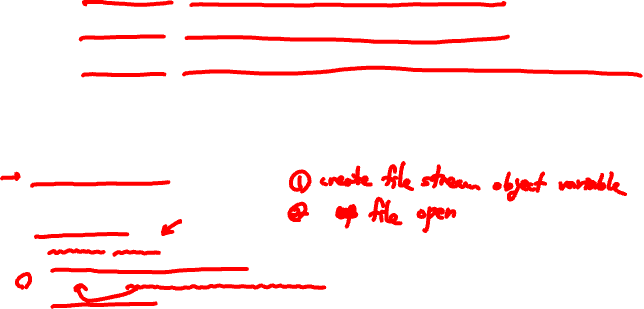 ① create file stream object variable
② file open